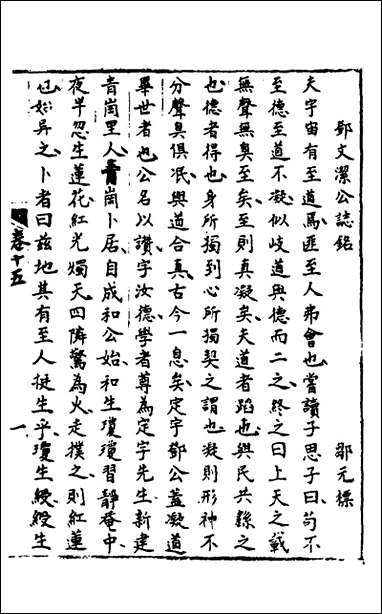 鄧文潔公誌銘
鄒元標
夫宇宙有至道焉匪至人弗會也嘗讀子思子曰苟不
至德至道不凝似歧道與德而二之終之曰上天之載
無聲無臭至矣至則真凝矣夫道者蹈也與民共繇之
也德者得也身所獨到心所獨契之謂也凝則形神不
分聲臭俱泯與道合真古今一息矣定宇鄧公蓋凝道
畢世者也公名以讚字汝德學者尊為定宇先生新建
青崗里人青崗卜居自成和公始和生瓊瓊習靜菴中
夜半忽生蓮花紅光燭天四隣驚為火走撲之則紅蓮
也始異之卜者曰玆地其有至人挺生乎瓊生綬綬生
卷十五
一